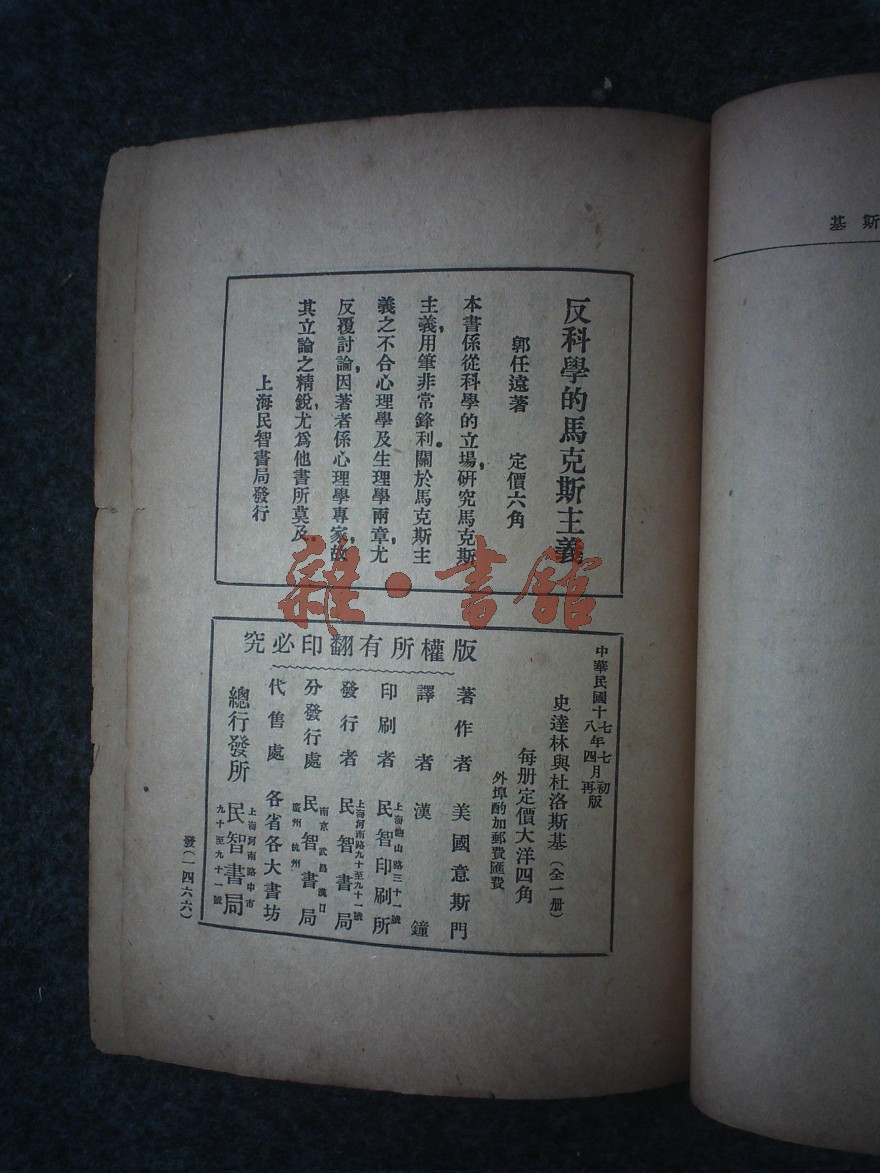 反科學的馬克斯主義
郭任遠著 定價六角
本書係從科學的立場，研究馬克斯
主義，用筆非常鋒利。關於馬克斯主
義之不合心理學及生理學兩章，尤
反覆討論，因著者係心理學專家，故
其立論之精銳，尤爲他書所莫及。
上海民智書局發行
雜·書館
中華民國十七年七月初版
八年四月再版
史達林與杜洛斯基（全一册）
每册定價大洋四角
外埠酌加郵費匯費
版權所有翻印必究
著作者 美國意斯門
譯者 漢鐘
印刷者 民智印刷所
上海 山路三十一號
發行者 民智書局
上海河南路九十至九十一號
分發行處 民智書局
南京 武昌 漢口
廣州 杭州
代售處 各省各大書坊
總行發所 民智書局
上海河南路中市
九十至九十一號
發（一四六六）
斯基